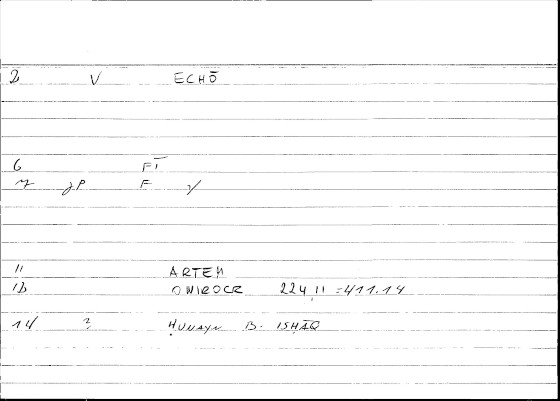 2 V ECHŌ
6 FT
7 JP F y
11 ARTEM
12 ONIROCR 224,11 =411.14
14 ? Ḥunayn B. Isḥāq